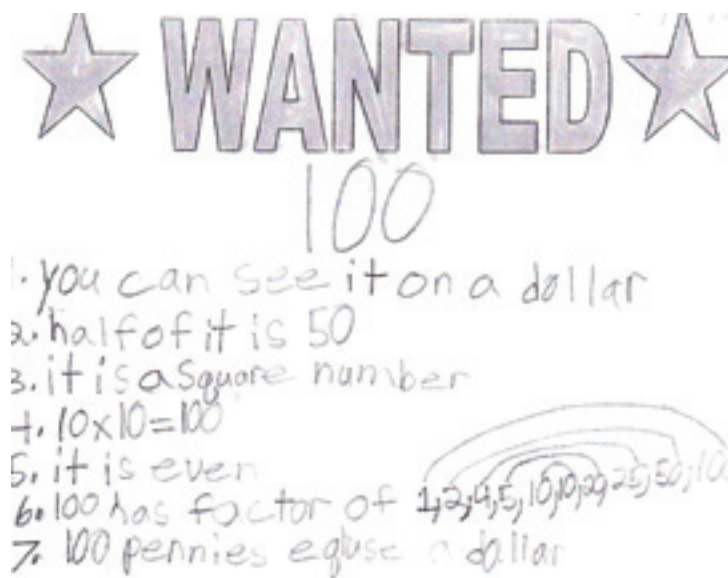 WANTED
100
1. you can see it on a dollar
2. half of it is 50
3. it is a square number
4. 10x10=100
5. it is even
6. 100 has factor of 1,2,4,5,10,10,20,25,50,10
7. 100 pennies eqluse a dollar